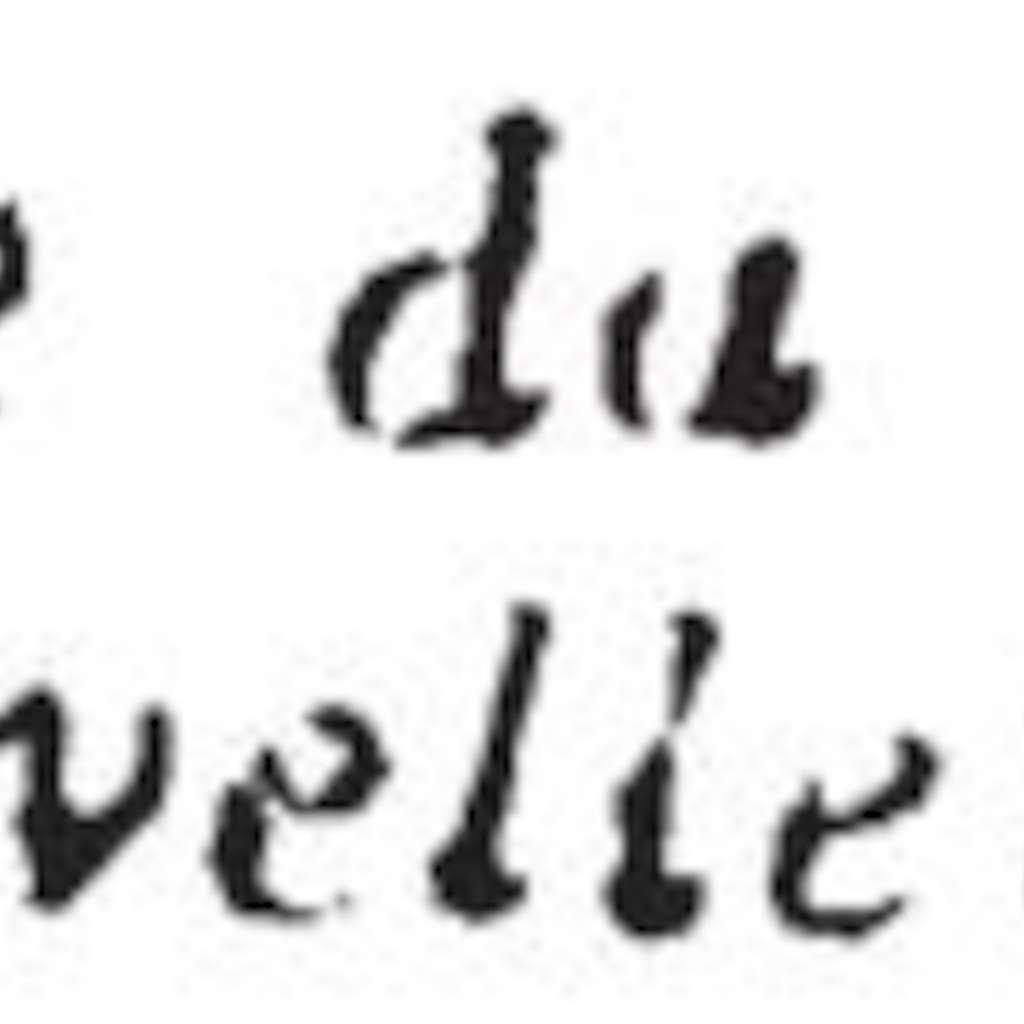 du
velle